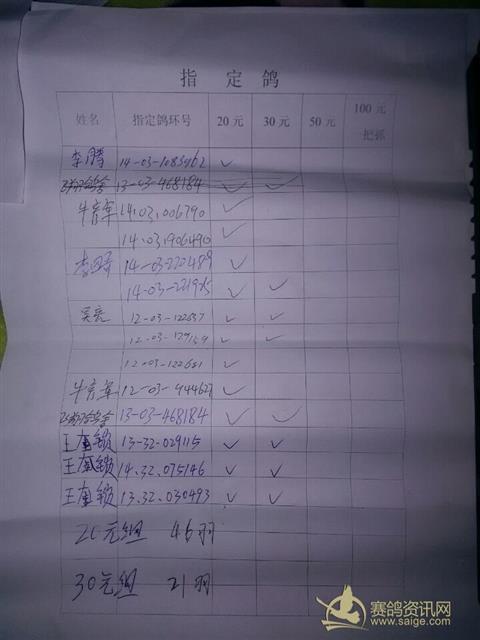 指定鸽
姓名 指定鸽环号 20元 30元 50元 100元
一把抓
李腾 14-03-1083462 ✓
13-03-468184 ✓ ✓
牛京军 14.03.006790 ✓
14.03.906490 ✓
14-03-220489 ✓
14-03-221925 ✓ ✓
吴亮 12-03-122637 ✓ ✓
12-03-129159 ✓ ✓
12-03-122621 ✓
牛京军 12-03-444627 ✓
13-03-468184 ✓ ✓
王奎锁 13-32-029115 ✓ ✓
王奎锁 14.32.075146 ✓ ✓
王奎锁 13.32.030493 ✓ ✓
20元组 46羽
30元组 21羽
赛鸽资讯网
www.saige.com